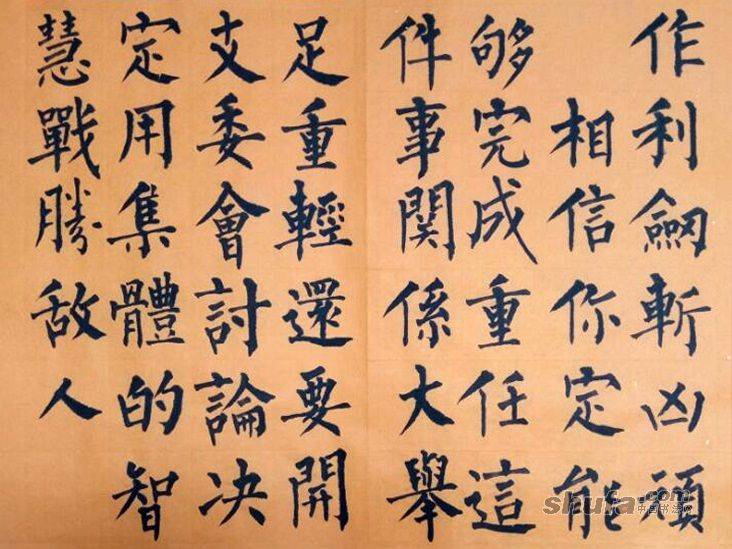 作利劍斬凶頑
相信你定能
够完成重任這
件事関係大舉
足重輕還要開
支委會討論决
定用集體的智
慧戰勝敌人
shufa.com
中国书法网